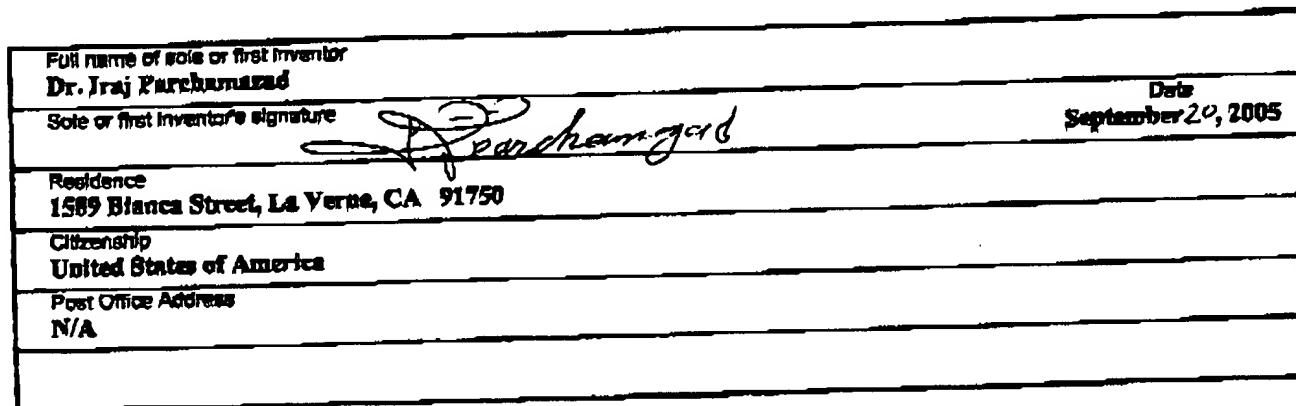 Full name of sole or first inventor
Dr. Iraj Parchamazad
Sole or first inventor's signature
Parchamazad
Date
September 20, 2005
Residence
1589 Bianca Street, La Verne, CA 91750
Citizenship
United States of America
Post Office Address
N/A